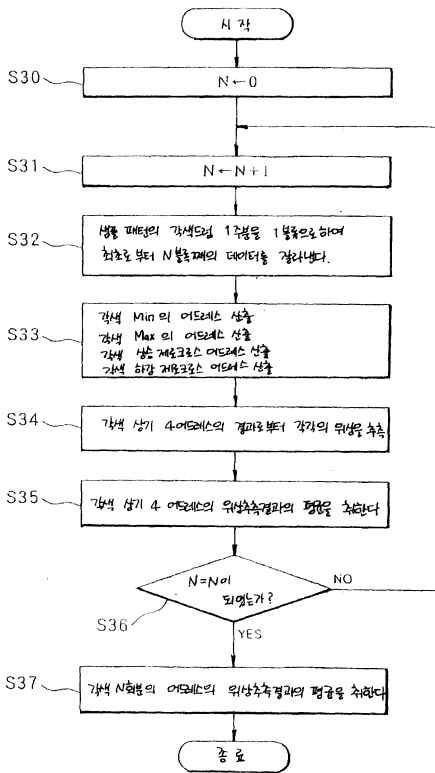 시작
S30
N←0
S31
N←N+1
S32
샘플 패턴의 각색드럼 1주분을 1블록으로하여
최초로부터 N블록째의 데이터를 잘라낸다.
S33
각색 Min의 어드레스 산출
각색 Max의 어드레스 산출
각색 상승 제로크로스 어드레스 산출
각색 하강 제로크로스 어드레스 산출
S34
각색 상기 4어드레스의 결과로부터 각각의 위상을 추측
S35
각색 상기 4 어드레스의 위상추측결과의 평균을 취한다
N=N이
되었는가?
NO
S36
YES
S37
각색 N회분의 어드레스의 위상추측결과의 평균을 취한다
종료